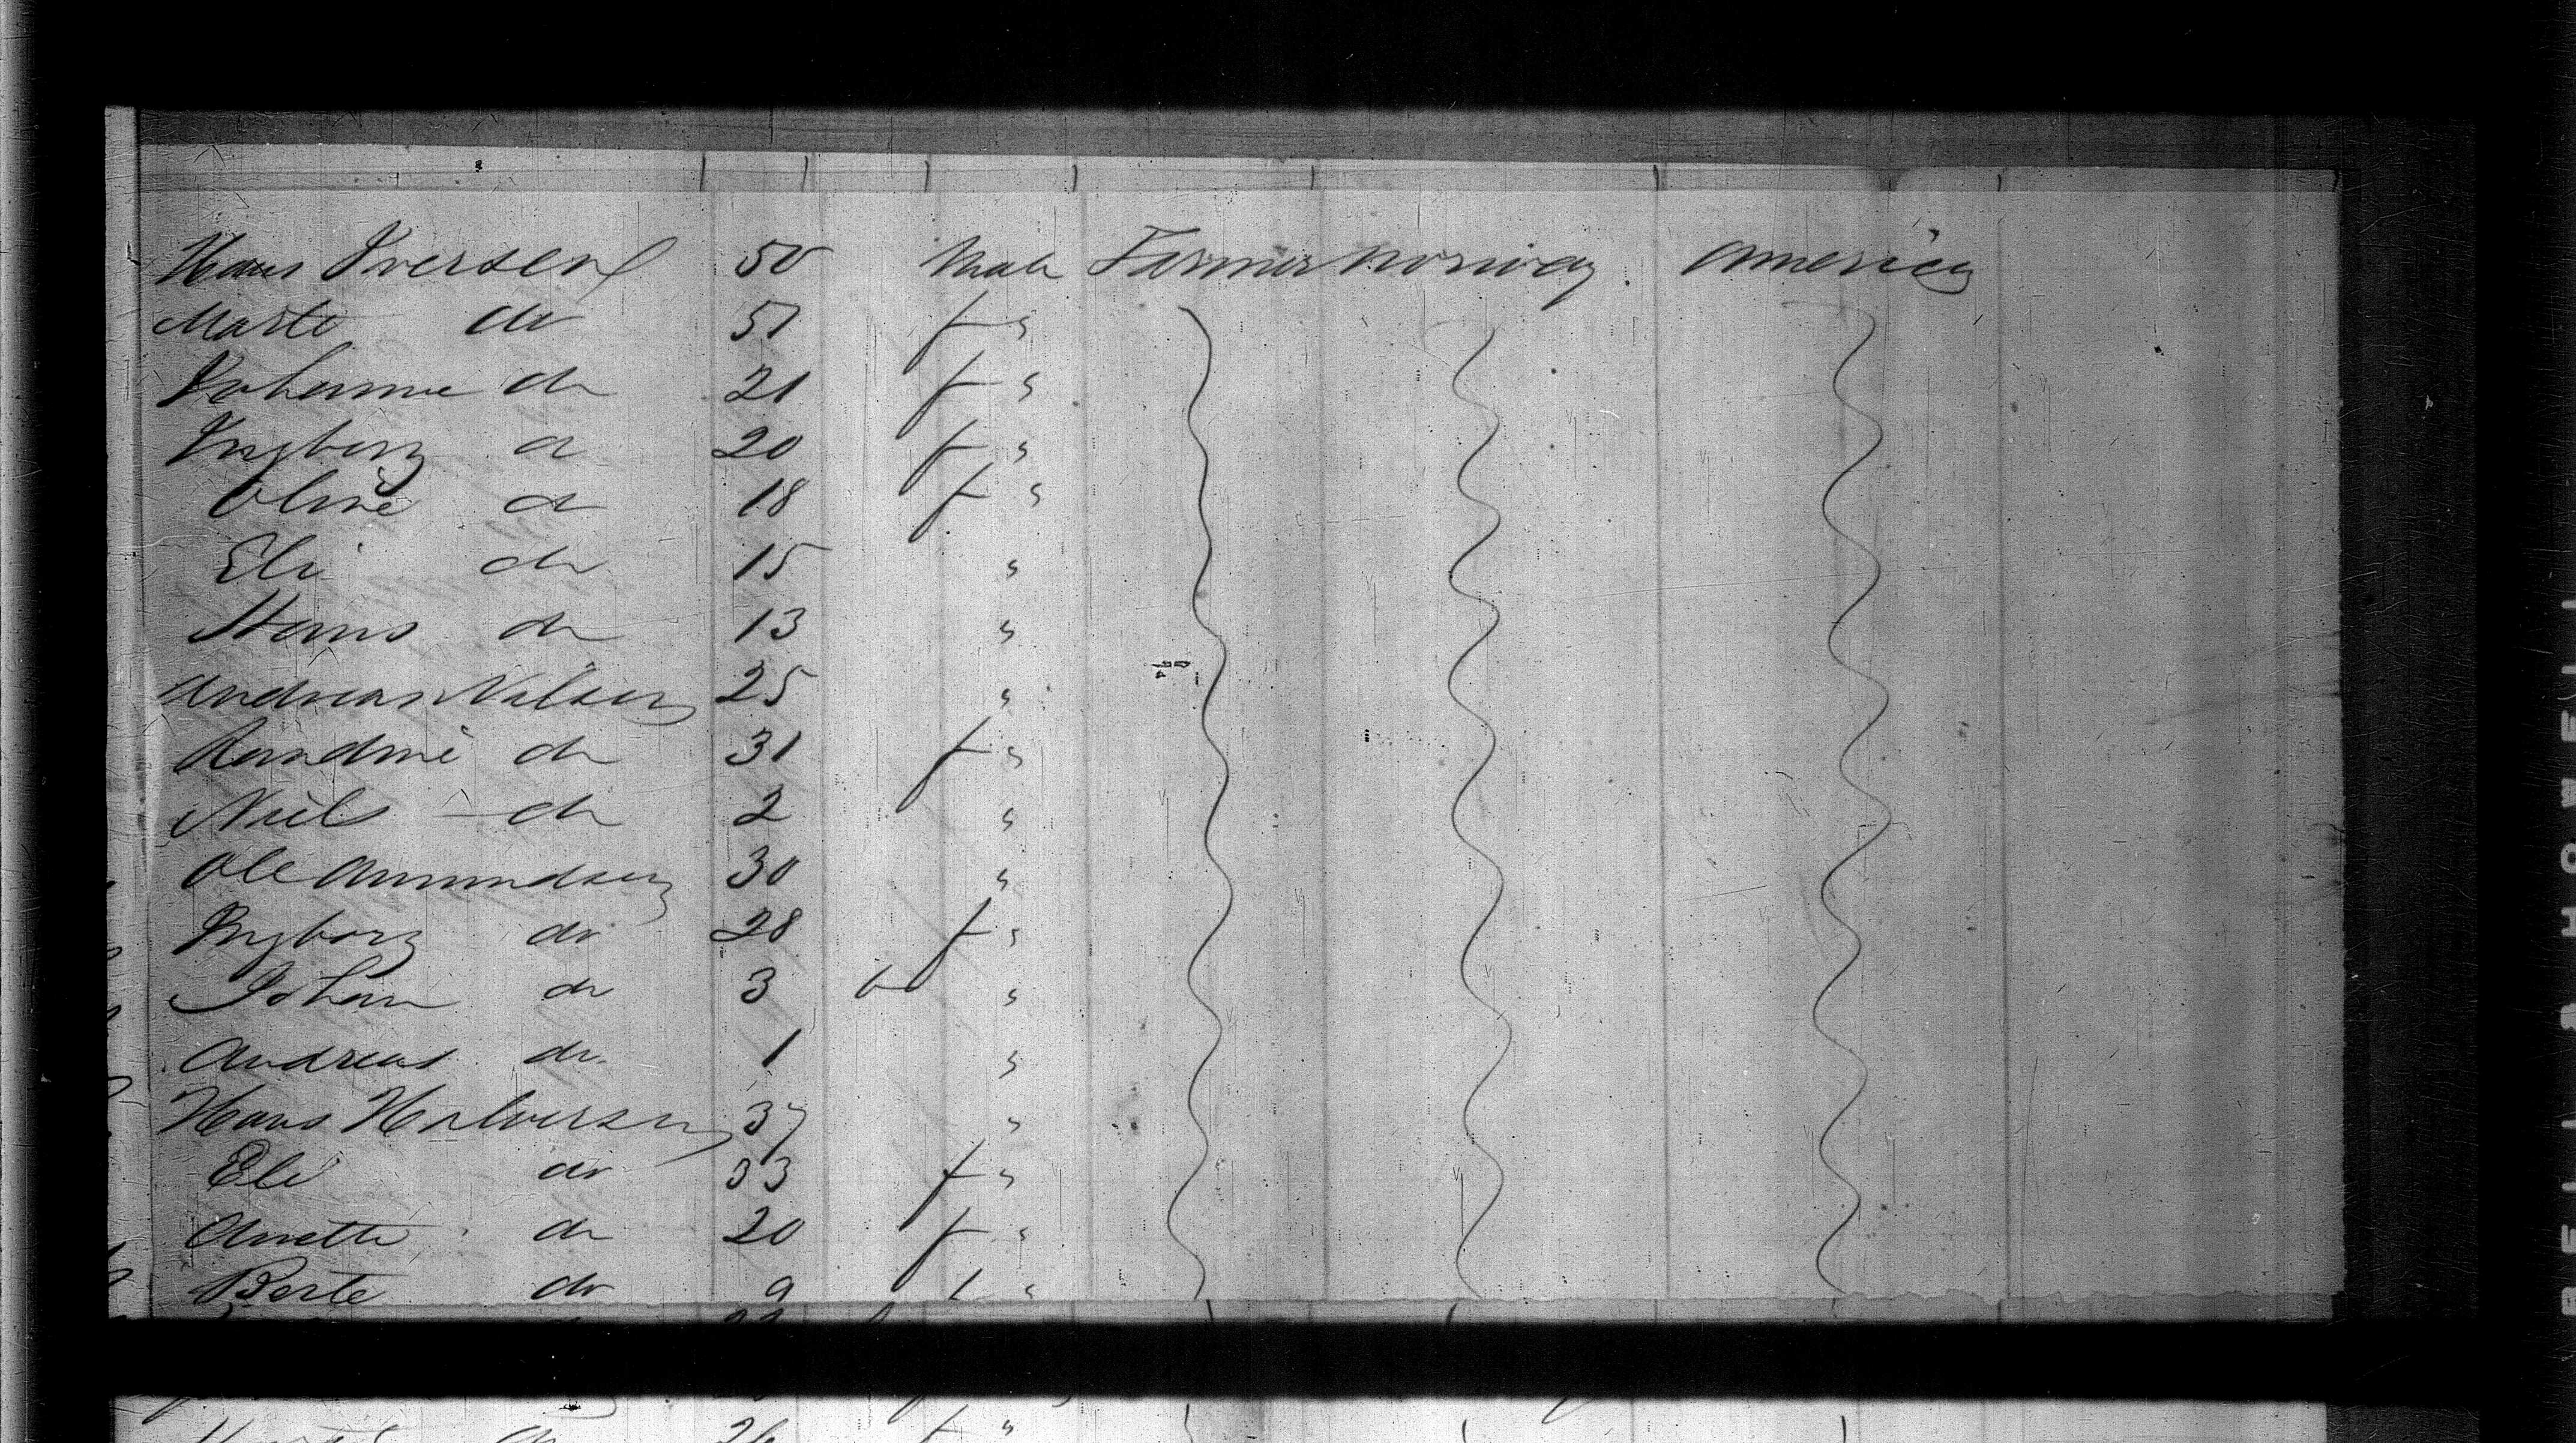 Hans Iversen 50 Male Farmer Norway America
Marte do 51 f "
Johanne do 21 f "
Ingborg d 20 f "
Oline d 18 f "
Eli do 15 "
Hans do 13 "
Andreas Nilsen 25 "
Randine do 31 f "
Niels do 2 "
Ole Amundsen 30 "
Ingborg do 28 f "
Johan do 3 "
Andreas do 1 "
Hans Halversen 37 "
Eli do 33 f "
Anette do 20 f "
Berte do 9 "
26 f "